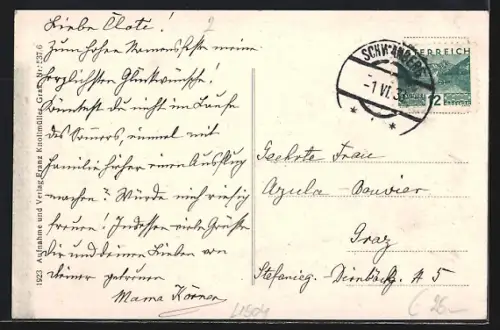 Liebe Clote!
Zum hohen Namensfeste meine
herzlichsten Glückwünsche!
Könntest du nicht im Laufe
des Sommers, einmal mit
Familie hieher einen Ausflug
machen? Würde mich riesig
freuen! Indessen viele Grüße
dir und deinen Lieben von
deiner getreuen
Mama Körner
1923 Aufnahme und Verlag Franz Knollmüller, Graz, Nr. 237.6
2
SCHWANBERG
-1.VI.3
ÖSTERREICH
12
Geehrte Frau
Azula-Bouvier
Graz
5